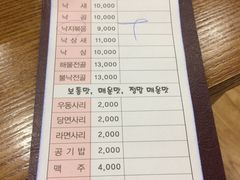 낙 새 10,000
낙 곱 10,000
낙지볶음 9,000
낙 삼 새 11,000
낙 삼 10,000
해물전골 13,000
불낙전골 13,000
보통맛, 매운맛, 정말 매운맛
우동사리 2,000
당면사리 2,000
라면사리 2,000
공 기 밥 2,000
맥 주 4,000